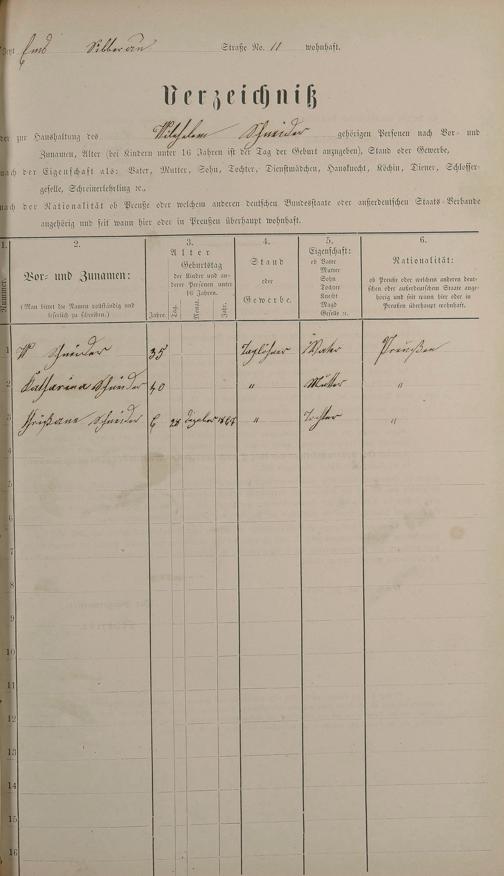 Ems Silberau Straße No. 11 wohnhaft.
Verzeichniß
der zur Haushaltung des Wilhelm Schneider gehörigen Personen nach Vor- und
Zunamen, Alter (bei Kindern unter 16 Jahren ist der Tag der Geburt anzugeben), Stand oder Gewerbe,
nach der Eigenschaft als: Vater, Mutter, Sohn, Tochter, Dienstmädchen, Hausknecht, Köchin, Diener, Schlosser-
geselle, Schreinerlehrling ꝛc.,
nach der Nationalität ob Preuße oder welchem anderen deutschen Bundesstaate oder außerdeutschen Staats-Verbande
angehörig und seit wann hier oder in Preußen überhaupt wohnhaft.
1. 2. 3. 4. 5. 6.
Nummer.
Vor- und Zunamen:
(Man bittet die Namen vollständig und
leserlich zu schreiben.)
Alter
Geburtstag
der Kinder und an-
derer Personen unter
16 Jahren.
Jahre. Tag. Monat. Jahr.
Stand
oder
Gewerbe.
Eigenschaft:
ob Vater
Mutter
Sohn
Tochter
Knecht
Magd
Geselle ꝛc.
Nationalität:
ob Preuße oder welchem anderen deut-
schen oder außerdeutschem Staate ange-
hörig und seit wann hier oder in
Preußen überhaupt wohnhaft.
1 W Schneider 35 Taglöhner Vater Preußen
2 Katharina Schneider 40 " Mutter "
3 Schneider 6 28 1864 " Tochter "
4
5
6
7
8
9
10
11
12
13
14
15
16